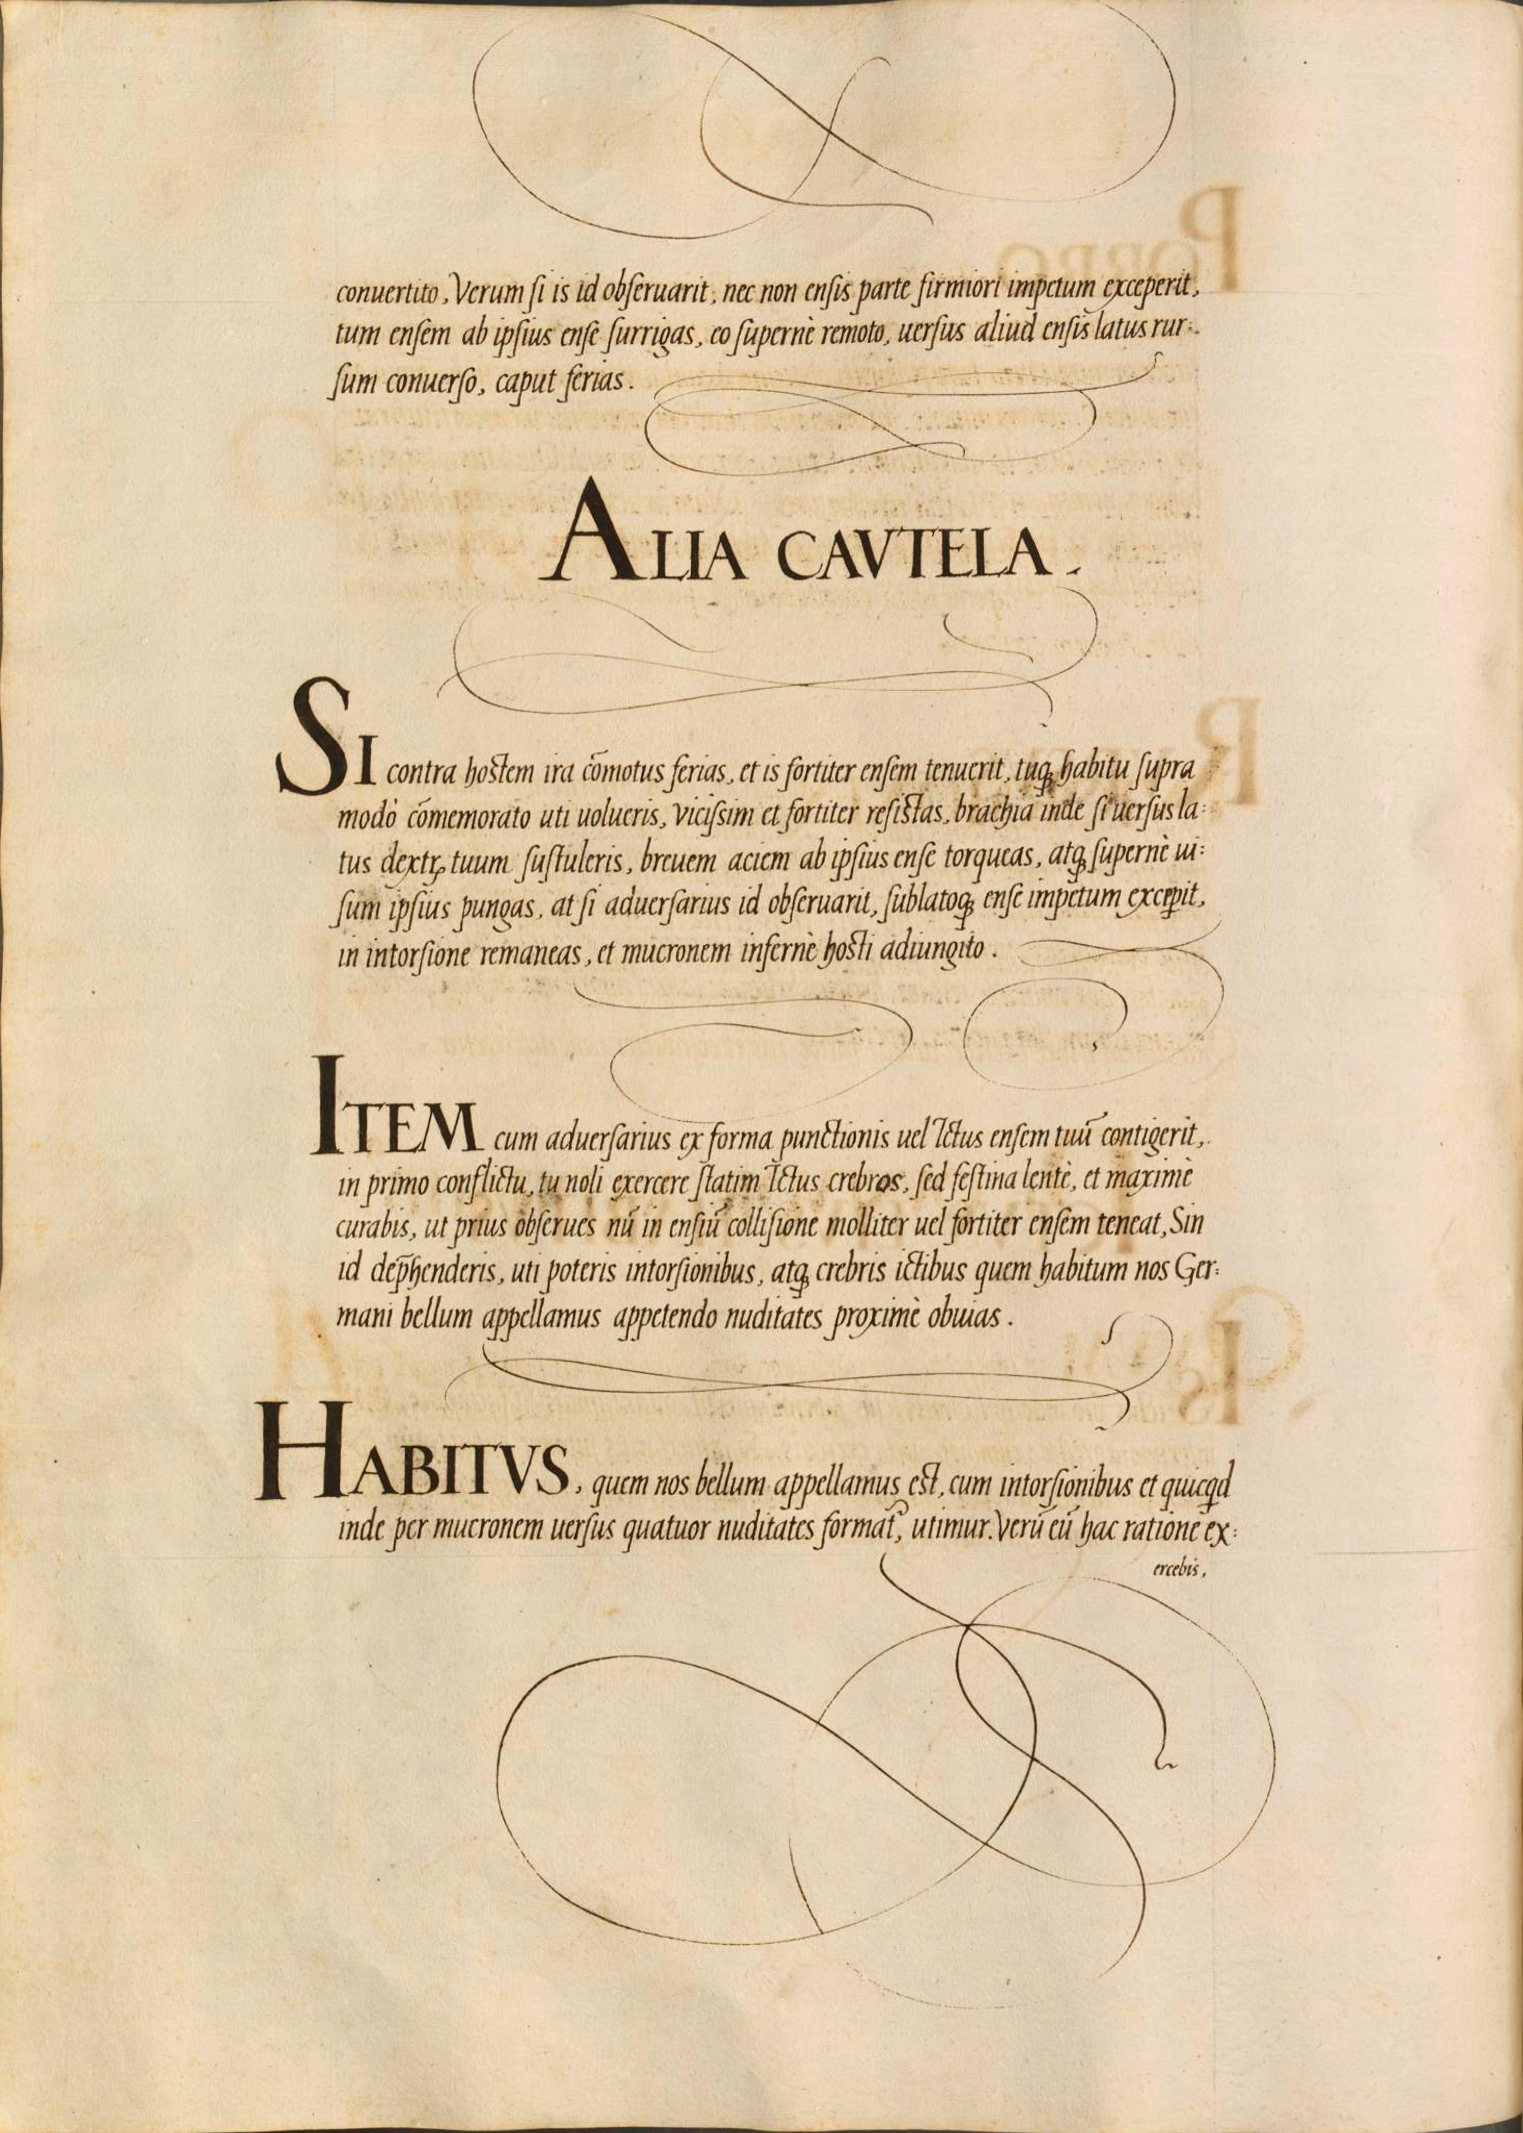 conuertito, Verum ſi is id obſeruarit, nec non enſis parte firmiori impetum exceperit,
tum enſem ab ipſius enſe ſurrigas, eo ſupernè remoto, uerſus aliud enſis latus rur:
ſum conuerſo, caput ferias.
ALIA CAVTELA.
SI contra hostem ira cōmotus ferias, et is fortiter enſem tenuerit, tuq̄ habitu ſupra
modò cōmemorato uti uolueris, Viciſsim et fortiter reſistas, brachia inde ſi uerſus la:
tus dextꝝ tuum ſuſtuleris, breuem aciem ab ipſius enſe torqueas, atq̄ ſupernè ui:
ſum ipſius pungas, at ſi aduerſarius id obſeruarit, ſublatoq̄ enſe impetum excepit,
in intorſione remaneas, et mucronem infernè hosti adiungito.
ITEM cum aduerſarius ex forma punctionis uel Ictus enſem tuū contigerit,
in primo conflictu, tu noli exercere ſtatim Ictus crebros, ſed feſtina lentè, et maximè
curabis, ut prius obſerues nū in enſiū colliſione molliter uel fortiter enſem teneat, Sin
id dep̄henderis, uti poteris intorſionibus, atq̄ crebris ictibus quem habitum nos Ger:
mani bellum appellamus appetendo nuditates proximè obuias.
HABITVS, quem nos bellum appellamus est, cum intorſionibus et quicq̄d
inde per mucronem uerſus quatuor nuditates format᷑, utimur. Verū eū hac ratione ex:
ercebis,